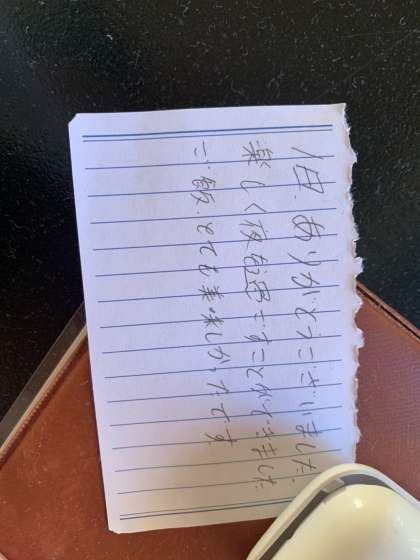 1泊、ありがとうございました
楽しく夜を過ごすことができました
ご飯、とても美味しかったです